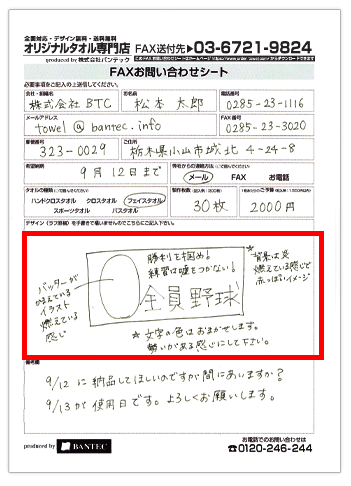 全面対応・デザイン無料・送料無料
オリジナルタオル専門店 FAX送付先▶03-6721-9824
produced by 株式会社バンテック
FAXお問い合わせシート
必要事項をご記入の上送信してください。
会社・団体名 お名前 電話番号
株式会社 BTC 松本 太郎 0285-23-1116
メールアドレス FAX番号
towel@bantec.info 0285-23-3020
郵便番号 ご住所
323-0029 栃木県小山市城北 4-24-8
希望納期 弊社からの連絡方法
9月12日まで メール FAX お電話
タオルの種類 製作枚数
ハンドクロスタオル クロスタオル フェイスタオル 30枚 2000円
スポーツタオル バスタオル
デザイン(ラフ原稿)を手書きで構いませんのでこちらにご記入下さい。
勝利を掴め!
練習は嘘をつかない!
全員野球
バッターが
かまえている
イラスト
燃えている
感じ
★背景は炎
燃えている感じで
赤っぽいイメージ
★文字の色はおまかせします。
勢いがある感じにして下さい。
備考欄
9/12 に納品してほしいのですが間にあいますか?
9/13 が使用日です。よろしくお願いします。
produced by BANTEC
お電話でのお問い合わせは
☎0120-246-244